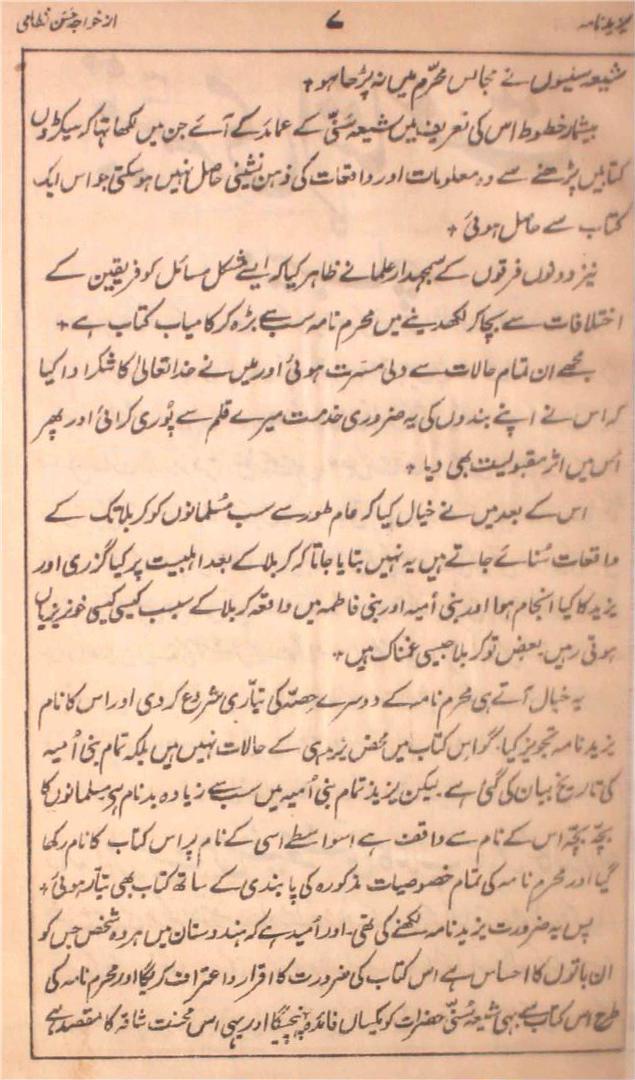 یزید نامہ ۷ از خواجہ حسن نظامی
شیعہ سنیوں نے مجالس محرّم میں نہ پڑھا ہو +
بیشمار خطوط اس کی تعریف میں شیعہ سُنّی کے عمائد کے آئے جن میں لکھا تھا کہ سیکڑوں
کتابیں پڑھنے سے وہ معلومات اور واقعات کی ذہن نشینی حاصل نہیں ہو سکتی جو اس ایک
کتاب سے حاصل ہوئی +
نیز دونوں فرقوں کے سمجھدار علما نے ظاہر کیا کہ ایسے مشکل مسائل کو فریقین کے
اختلافات سے بچا کر لکھدینے میں محرم نامہ سب سے بڑہ کر کامیاب کتاب ہے +
مجھے ان تمام حالات سے دلی مسرت ہوئی اور میں نے خدا تعالیٰ کا شکر ادا کیا
کہ اس نے اپنے بندوں کی یہ ضروری خدمت میرے قلم سے پُوری کرائی اور پھر
اُس میں اثر مقبولیت بھی دیا +
اس کے بعد میں نے خیال کیا کہ عام طور سے سب مُسلمانوں کو کربلا تک کے
واقعات سُنائے جاتے ہیں یہ نہیں بتایا جاتا کہ کربلا کے بعد اہلبیت پر کیا گزری اور
یزید کا کیا انجام ہوا اور بنی اُمیہ اور بنی فاطمہ میں واقعہ کربلا کے سبب کیسی کیسی خونریزیاں
ہوتی رہیں بعض تو کربلا جیسی غمناک ہیں +
یہ خیال آتے ہی محرم نامہ کے دوسرے حصّہ کی تیّاری شروع کر دی اور اس کا نام
یزید نامہ تجویز کیا۔ گو اس کتاب میں محض یزید ہی کے حالات نہیں ہیں بلکہ تمام بنی اُمیہ
کی تاریخ بیان کی گئی ہے لیکن یزید تمام بنی اُمیہ میں سب سے زیادہ بدنام ہی مسلمانوں کا
بچّہ بچّہ اس کے نام سے واقف ہے اسواسطے اسی کے نام پر اس کتاب کا نام رکھا
گیا اور محرم نامہ کی تمام خصوصیات مذکورہ کی پابندی کے ساتھ کتاب بھی تیّار ہوئی +
پس یہ ضرورت یزید نامہ لکھنے کی تھی۔ اور اُمید ہے کہ ہندوستان میں ہر وہ شخص جس کو
ان باتوں کا احساس ہے اس کتاب کی ضرورت کا اقرار و اعتراف کریگا اور محرم نامہ کی
طرح اس کتاب سے بھی شیعہ سُنّی حضرات کو یکساں فائدہ پہنچیگا اور یہی اس محنت شاقہ کا مقصد ہے